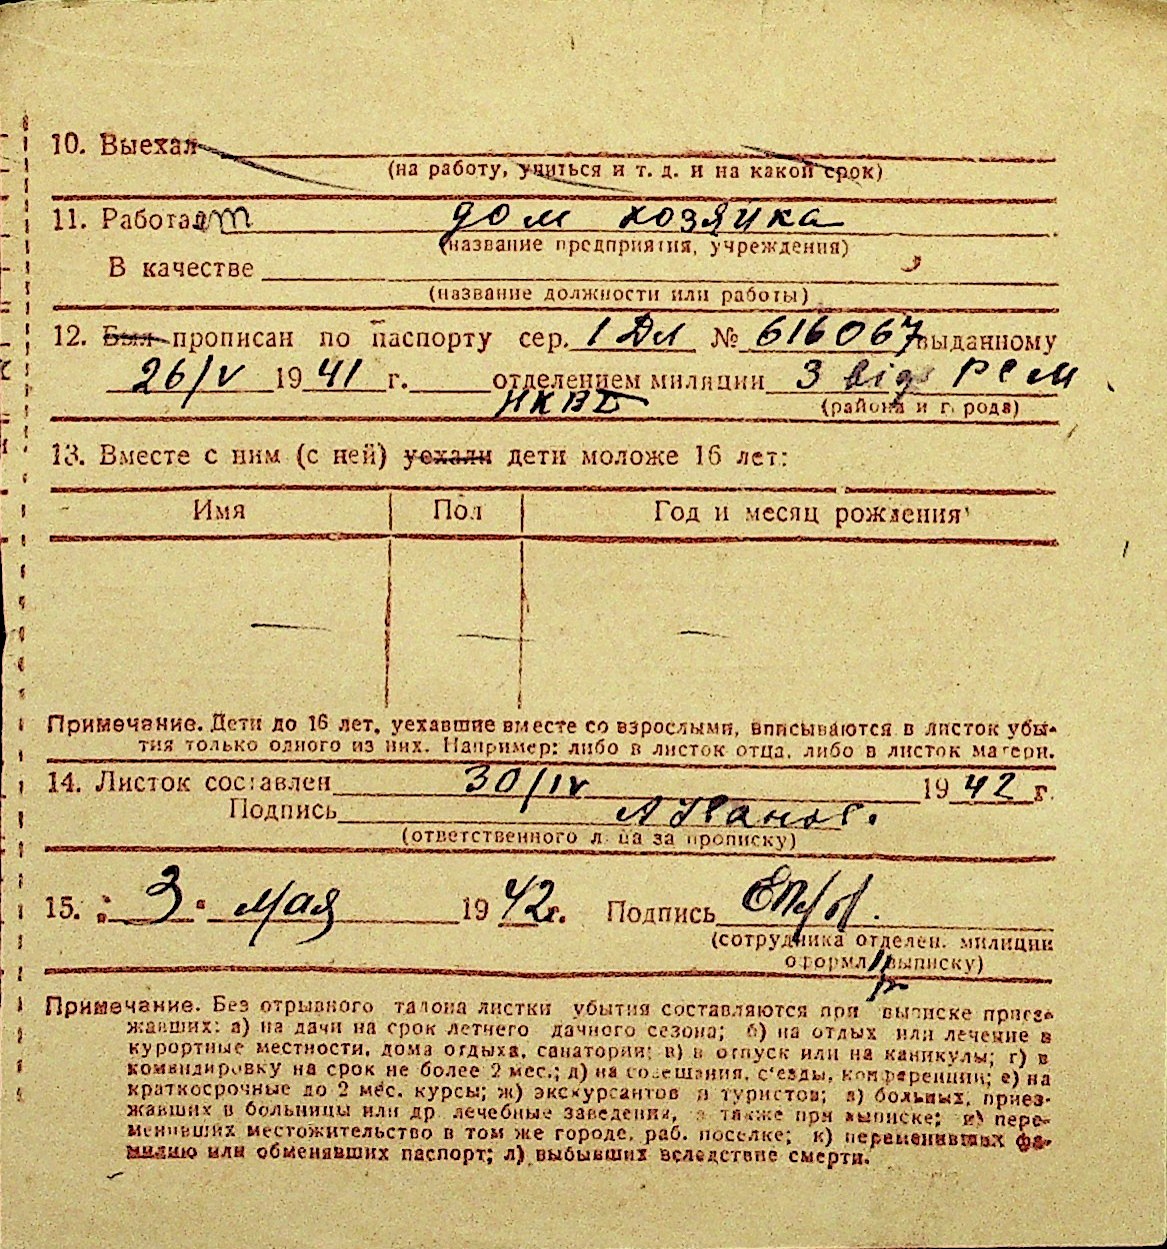 10. Выехал
(на работу, учиться и т. д. и на какой срок)
11. Работает дом хозяйка
(название предприятия, учреждения)
В качестве
(название должности или работы)
12. Был прописан по паспорту сер. 1 Дл № 616067 выданному
26/V 1941 г. отделением милиции 3 від РСМ
НКВД (района и города)
13. Вместе с ним (с ней) уехали дети моложе 16 лет:
Имя Пол Год и месяц рождения
— — —
Примечание. Дети до 16 лет, уехавшие вместе со взрослыми, вписываются в листок убы-
тия только одного из них. Например: либо в листок отца, либо в листок матери.
14. Листок составлен 30/IV 1942 г.
Подпись А Иванов.
(ответственного лица за прописку)
15. "3" мая 1942 г. Подпись
(сотрудника отделен. милиции
оформл. выписку)
Примечание. Без отрывного талона листки убытия составляются при выписке приез-
жавших: а) на дачи на срок летнего дачного сезона; б) на отдых или лечение в
курортные местности, дома отдыха, санатории; в) в отпуск или на каникулы; г) в
командировку на срок не более 2 мес.; д) на совещания, съезды, конференции; е) на
краткосрочные до 2 мес. курсы; ж) экскурсантов и туристов; з) больных, приез-
жавших в больницы или др лечебные заведения, а также при выписке; и) пере-
менивших местожительство в том же городе, раб. поселке; к) переменивших фа-
милию или обменявших паспорт; л) выбывших вследствие смерти.